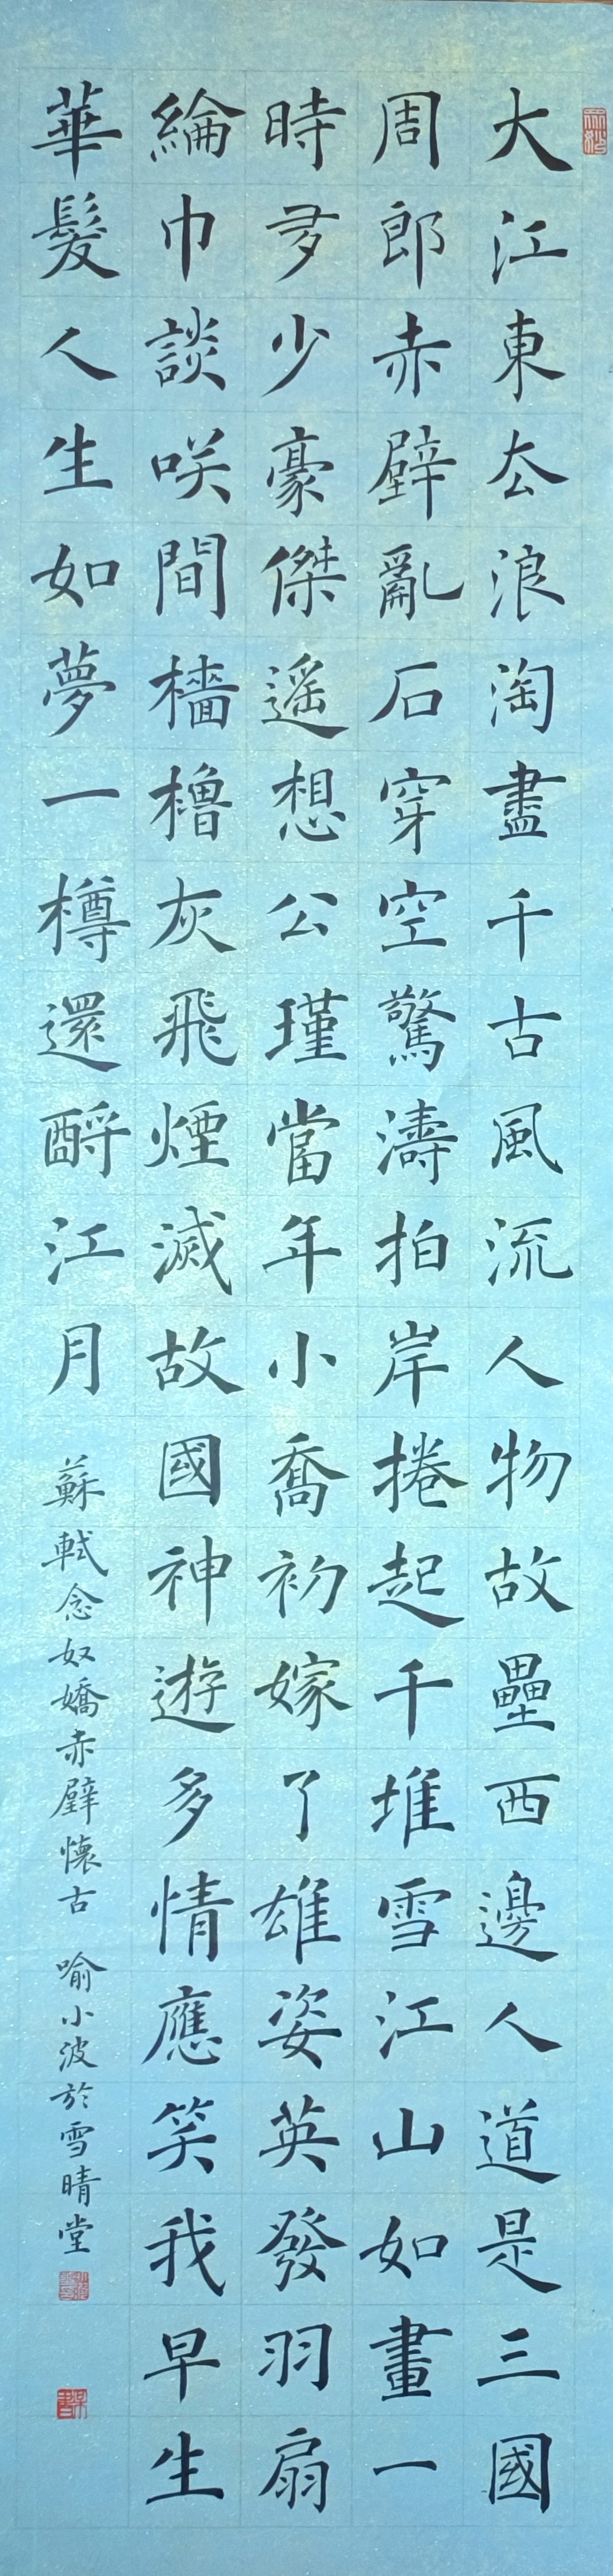 大江東厺浪淘盡千古風流人物故壘西邊人道是三國
周郎赤壁亂石穿空驚濤拍岸捲起千堆雪江山如畫一
時夛少豪傑遙想公瑾當年小喬初嫁了雄姿英發羽扇
綸巾談咲間檣櫓灰飛煙滅故國神遊多情應笑我早生
華髮人生如夢一樽還酹江月
蘇軾念奴嬌赤壁懷古 喻小波於雪晴堂